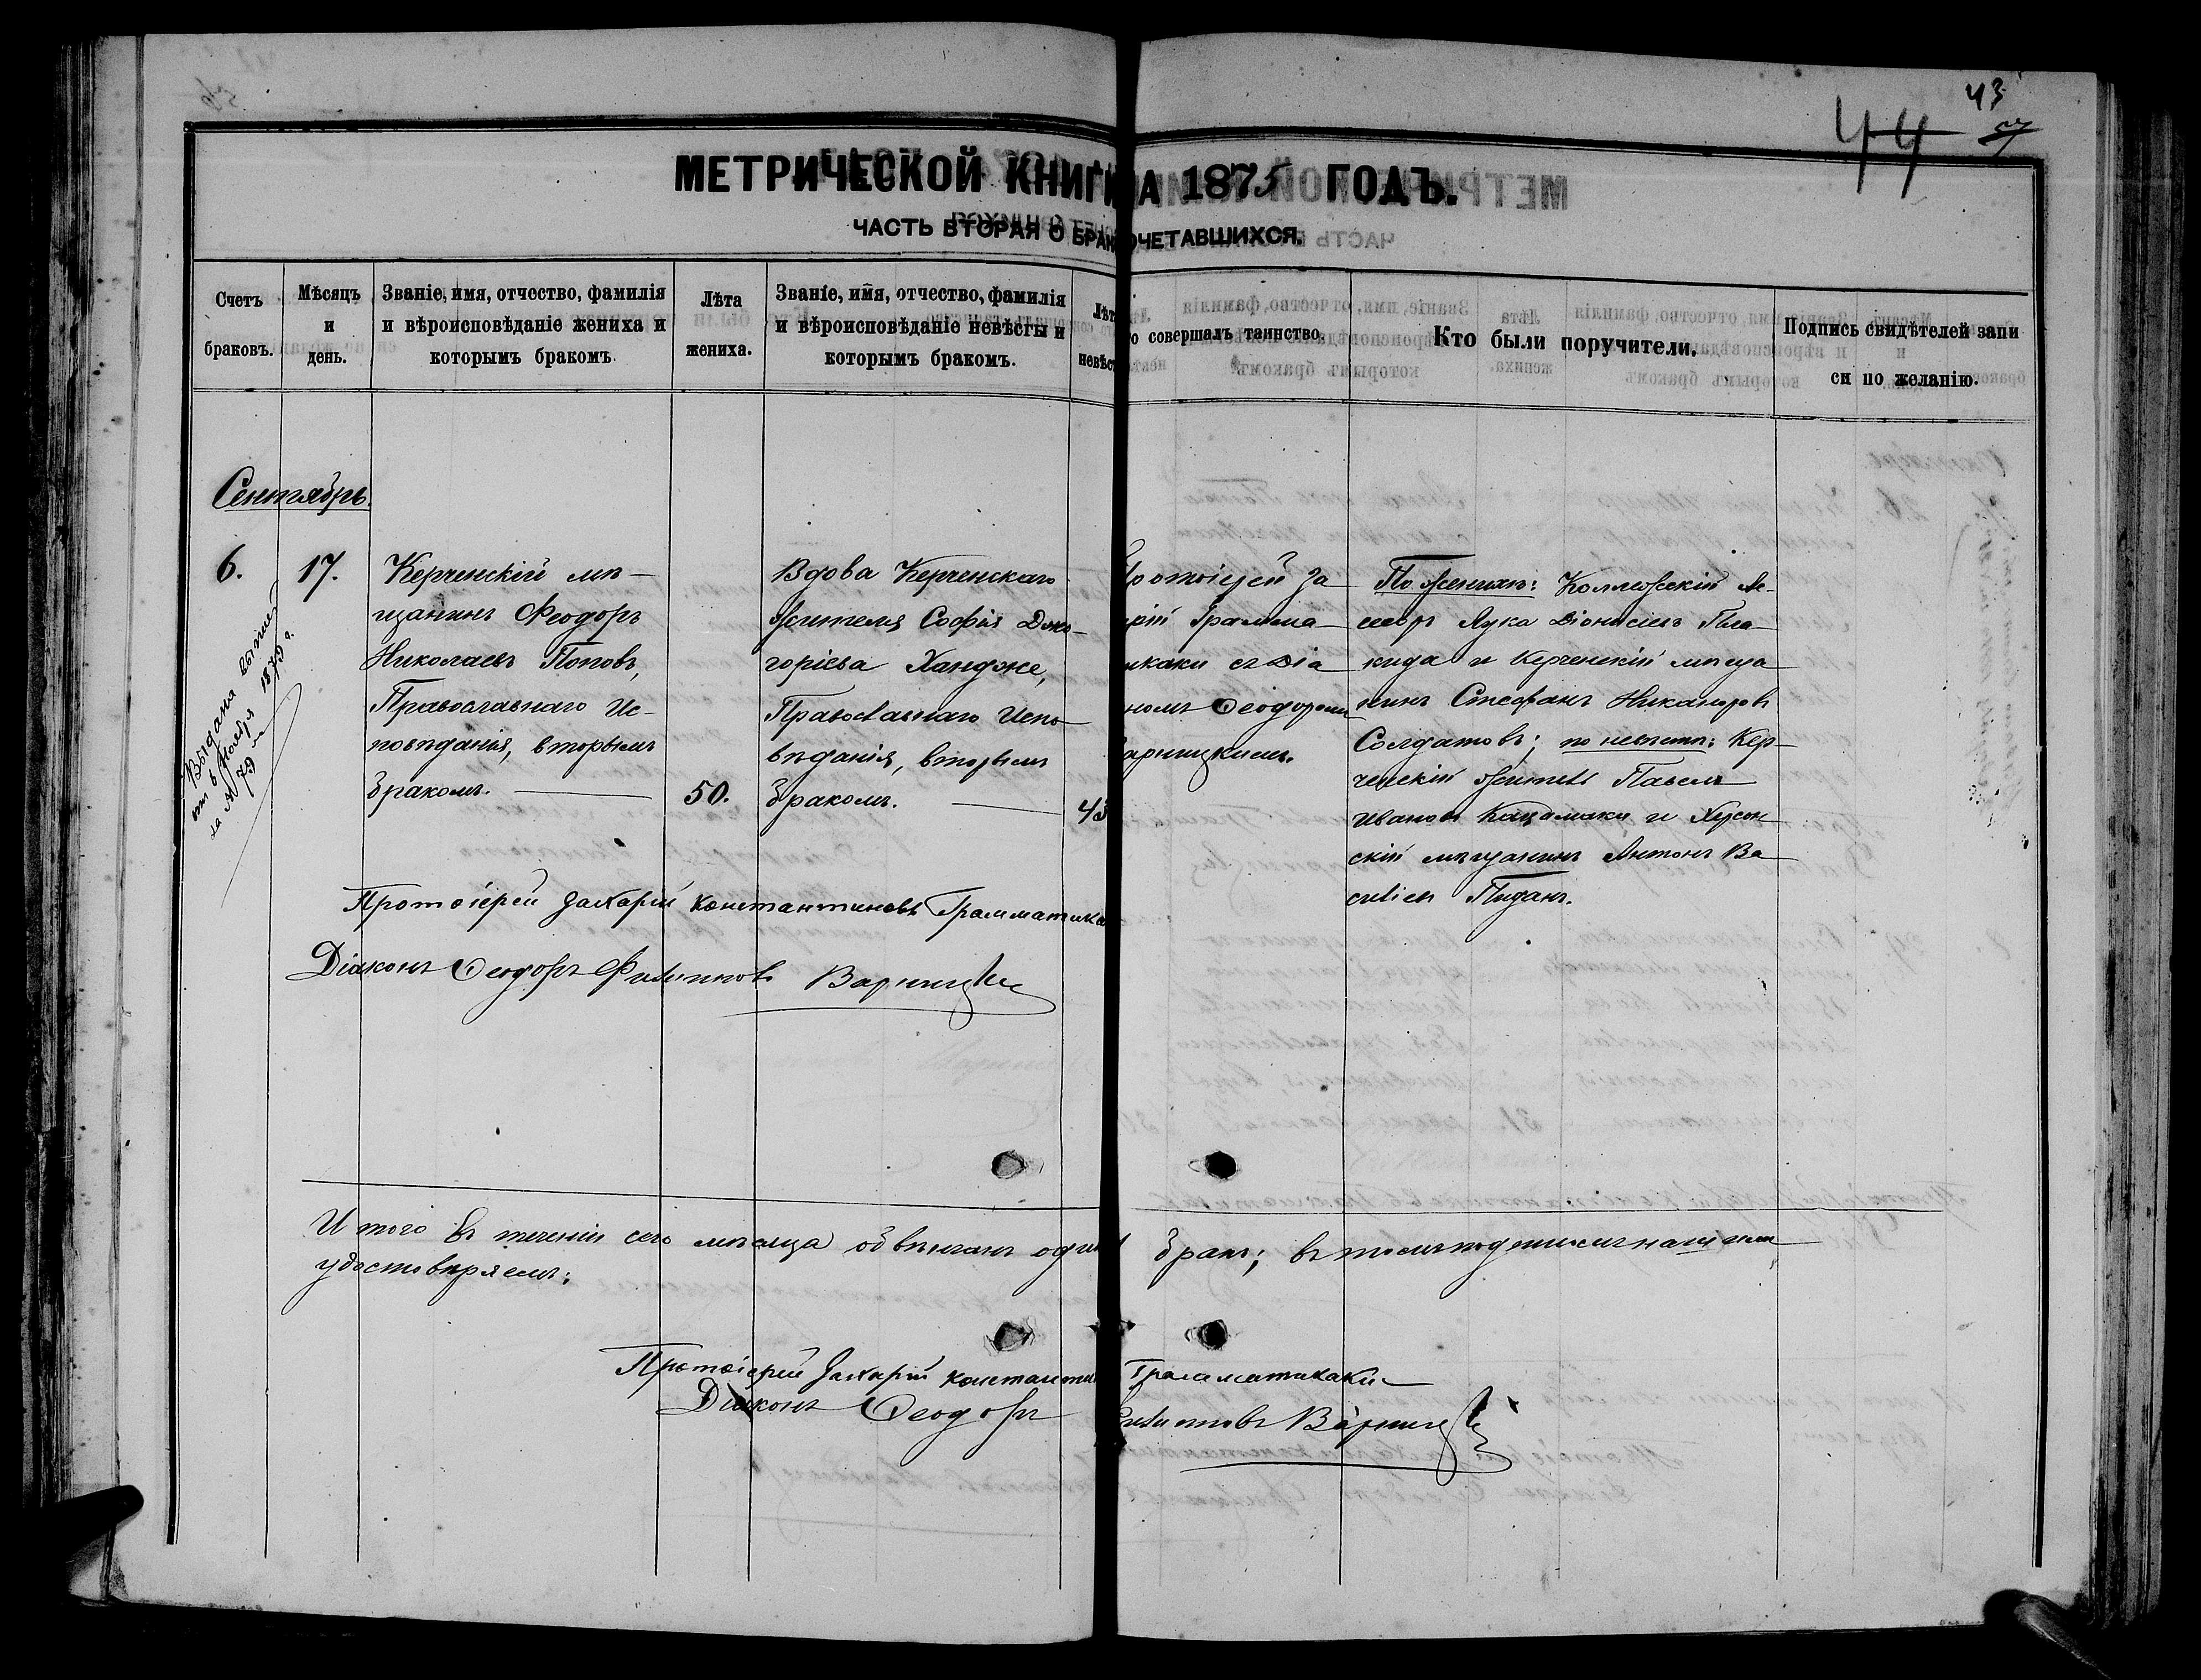 43
44
МЕТРИЧЕСКОЙ КНИГИ НА 1875 ГОДЪ.
ЧАСТЬ ВТОРАЯ О БРАКОЧЕТАВШИХСЯ.
Счетъ браковъ.
Мѣсяцъ и день.
Званіе, имя, отчество, фамилія
и вѣроисповѣданіе жениха и
которымъ бракомъ.
Лѣта
жениха.
Званіе, имя, отчество, фамилія
и вѣроисповѣданіе невѣсты и
которымъ бракомъ.
Лѣт
невѣс
о совершалъ таинство.
Кто были поручители.
Подпись свидѣтелей запи
си по желанію.
Сентябрь.
6.
17.
Керченскій мѣ–
щанинъ Ѳеодоръ
Николаевъ Поповъ,
Православнаго Ис–
повѣданія, вторымъ
бракомъ.
50.
Вдова Керченскаго
жителя Софія
горіева Ханджи,
Православнаго Испо
вѣданія, вторымъ
бракомъ.
43
Протоіерей За
рій Грамма
икаки съ Діа
номъ Ѳеодоромъ
арницкимъ.
По женихѣ: Коллежскій Ас–
сесоръ Лука Діонисіевъ Пла
кида и Керченскій мѣща
нинъ Стефанъ Никаноровъ
Солдатовъ; по невѣстѣ: Кер–
ченскій житель Павелъ
Ивановъ и Херсон
скій мѣщанинъ Антонъ Ва
силіев
Выдана
отъ 6 Ноября 1879 г.
за № 79
Протоіерей Захарій Константиновъ Грамматика
Діаконъ Ѳеодоръ Филипповъ Варницкій
Итого въ теченіи сего мѣсяца обвѣнчанъ один бракъ; въ томъ подписомъ нашимъ
удостовѣряемъ:
Протоіерей Захарій Константи Грамматикаки
Діаконъ Ѳеодоръ Филипповъ Варницкій